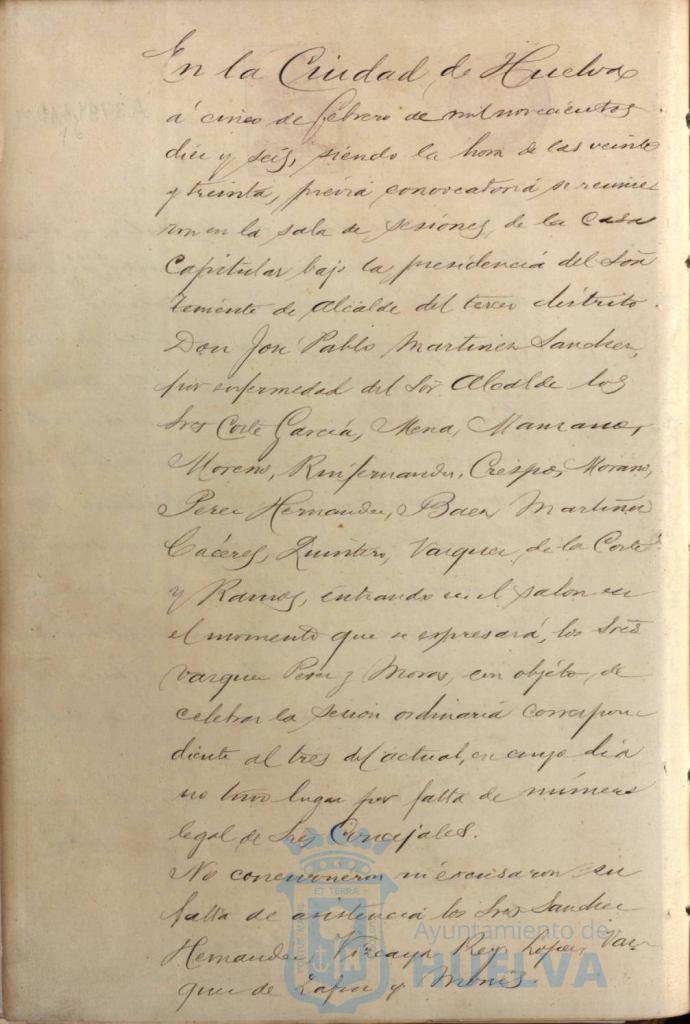 En la Ciudad de Huelva
á cinco de febrero de mil novecientos
diez y seis, siendo la hora de las veinte
y treinta, previa convocatoria se reunie
ron en la sala de sesiones de la Casa
Capitular bajo la presidencia del Sor
Teniente de Alcalde del tercer distrito
Don José Pablo Martinez Sanchez,
por enfermedad del Sor Alcalde los
Sres Corte García, Mena, Manzano,
Moreno, Ruifernandez, Crespo, Morano,
Perez Hernandez, Baez Martinez
Cáceres, Quintero, Vazquez de la Corte
y Ramos, entrando en el salon en
el momento que se expresará, los Sres
Vazquez Perez y Mora, con objeto de
celebrar la sesion ordinaria correspon
diente al tres del actual, en cuyo dia
no tuvo lugar por falta de número
legal de Sres Concejales.
No concurrieron ni excusaron su
falta de asistencia los Sres Sanchez
Hernandez, Vizcaya Rey, Lopez, Vaz
quez de Zafra y
ET TERRA
Ayuntamiento de
HUELVA